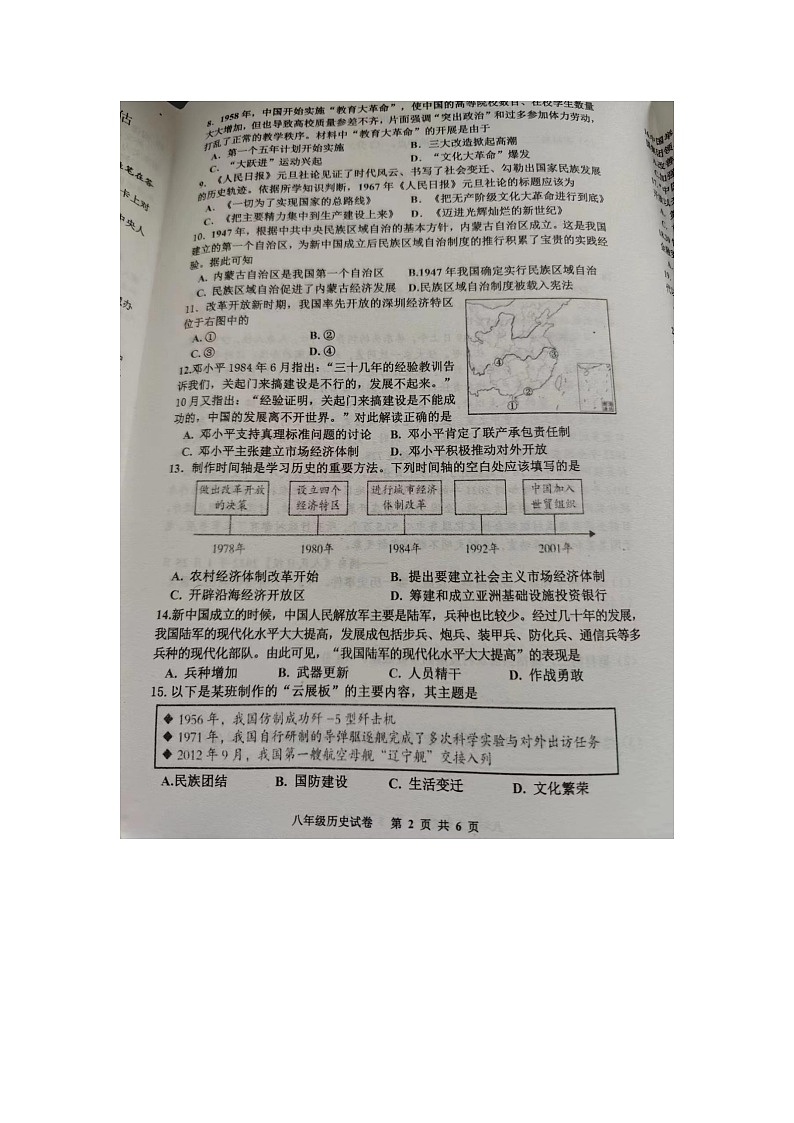 8. 1958年，中国开始实施“教育大革命”，使中国的高等院校数目、在校学生数量
大大增加，但也导致高校质量参差不齐，片面强调“突出政治”和过多参加体力劳动，
打乱了正常的教学秩序。材料中“教育大革命”的开展是由于
A. 第一个五年计划开始实施 B. 三大改造掀起高潮
C. “大跃进”运动兴起 D. “文化大革命”爆发
9. 《人民日报》元旦社论见证了时代风云、书写了社会变迁、勾勒出国家民族发展
的历史轨迹。依据所学知识判断，1967年《人民日报》元旦社论的标题应该为
A. 《一切为了实现国家的总路线》 B. 《把无产阶级文化大革命进行到底》
C. 《把主要精力集中到生产建设上来》 D. 《迈进光辉灿烂的新世纪》
10. 1947年，根据中共中央民族区域自治的基本方针，内蒙古自治区成立。这是我国
建立的第一个自治区，为新中国成立后民族区域自治制度的推行积累了宝贵的实践经
验。据此可知
A. 内蒙古自治区是我国第一个自治区 B.1947年我国确定实行民族区域自治
C. 民族区域自治促进了内蒙古经济发展 D.民族区域自治制度被载入宪法
11. 改革开放新时期，我国率先开放的深圳经济特区
位于右图中的
A.① B.②
C.③ D.④
④
③
②
①
12.邓小平1984年6月指出：“三十几年的经验教训告
诉我们，关起门来搞建设是不行的，发展不起来。”
10月又指出：“经验证明，关起门来搞建设是不能成
功的，中国的发展离不开世界。”对此解读正确的是
A. 邓小平支持真理标准问题的讨论 B. 邓小平肯定了联产承包责任制
C. 邓小平主张建立市场经济体制 D. 邓小平积极推动对外开放
13. 制作时间轴是学习历史的重要方法。下列时间轴的空白处应该填写的是
做出改革开放 设立四个 进行城市经济 中国加入
的决策 经济特区 体制改革 世贸组织
1978年 1980年 1984年 1992年 2001年
A. 农村经济体制改革开始 B. 提出要建立社会主义市场经济体制
C. 开辟沿海经济开放区 D. 筹建和成立亚洲基础设施投资银行
14.新中国成立的时候，中国人民解放军主要是陆军，兵种也比较少。经过几十年的发展，
我国陆军的现代化水平大大提高，发展成包括步兵、炮兵、装甲兵、防化兵、通信兵等多
兵种的现代化部队。由此可见，“我国陆军的现代化水平大大提高”的表现是
A. 兵种增加 B. 武器更新 C. 人员精干 D. 作战勇敢
15. 以下是某班制作的“云展板”的主要内容，其主题是
◆ 1956年，我国仿制成功歼-5型歼击机
◆ 1971年，我国自行研制的导弹驱逐舰完成了多次科学实验与对外出访任务
◆ 2012年9月，我国第一艘航空母舰“辽宁舰”交接入列
A.民族团结 B. 国防建设 C. 生活变迁 D. 文化繁荣
八年级历史试卷 第 2 页 共 6 页